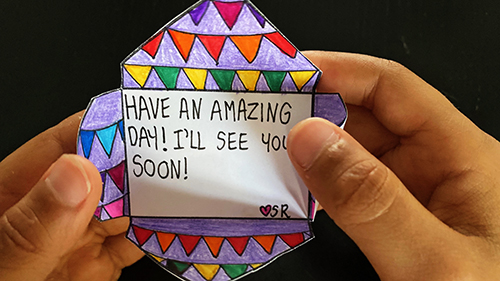 HAVE AN AMAZING
DAY! I'LL SEE YOU
SOON!
♥SR